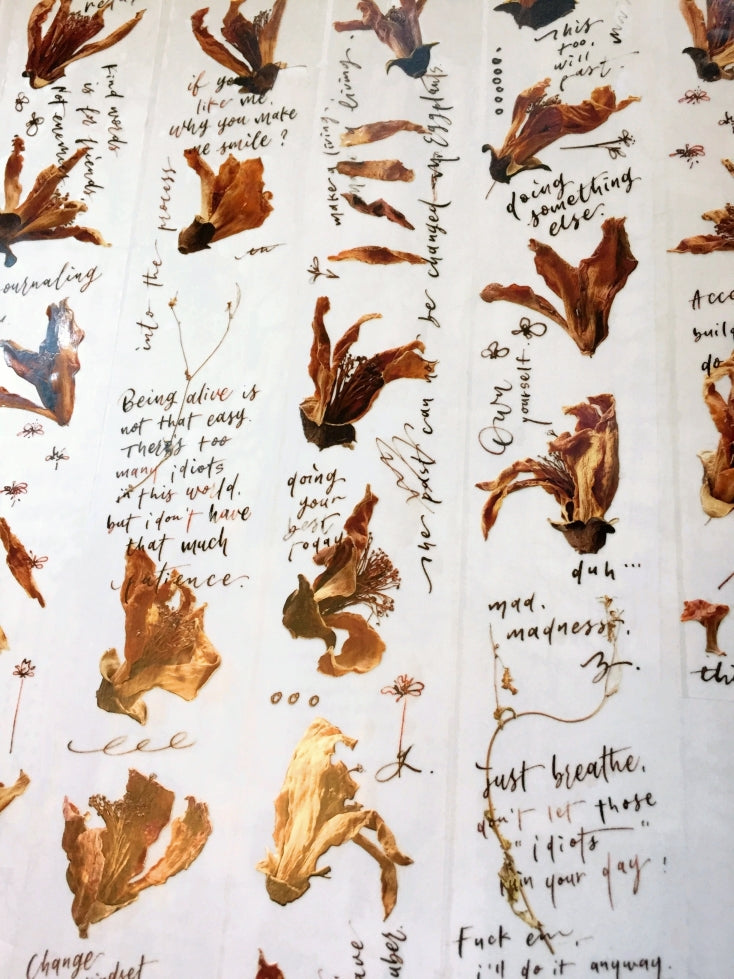 Find words
is for friends
Not enemy
journaling
if you
like me,
why you make
me smile?
into the process
Being alive is
not that easy.
There's too
many idiots
in this world.
but i don't have
that much
patience.
Change
living.
doing
your
best
today
The past can not be changed
This
too,
will
past.
doing
something
else.
Own
yourself
duh...
mad.
madness.
Just breathe.
don't let those
"idiots"
ruin your day!
Fuck em,
i'll do it anyway.
do